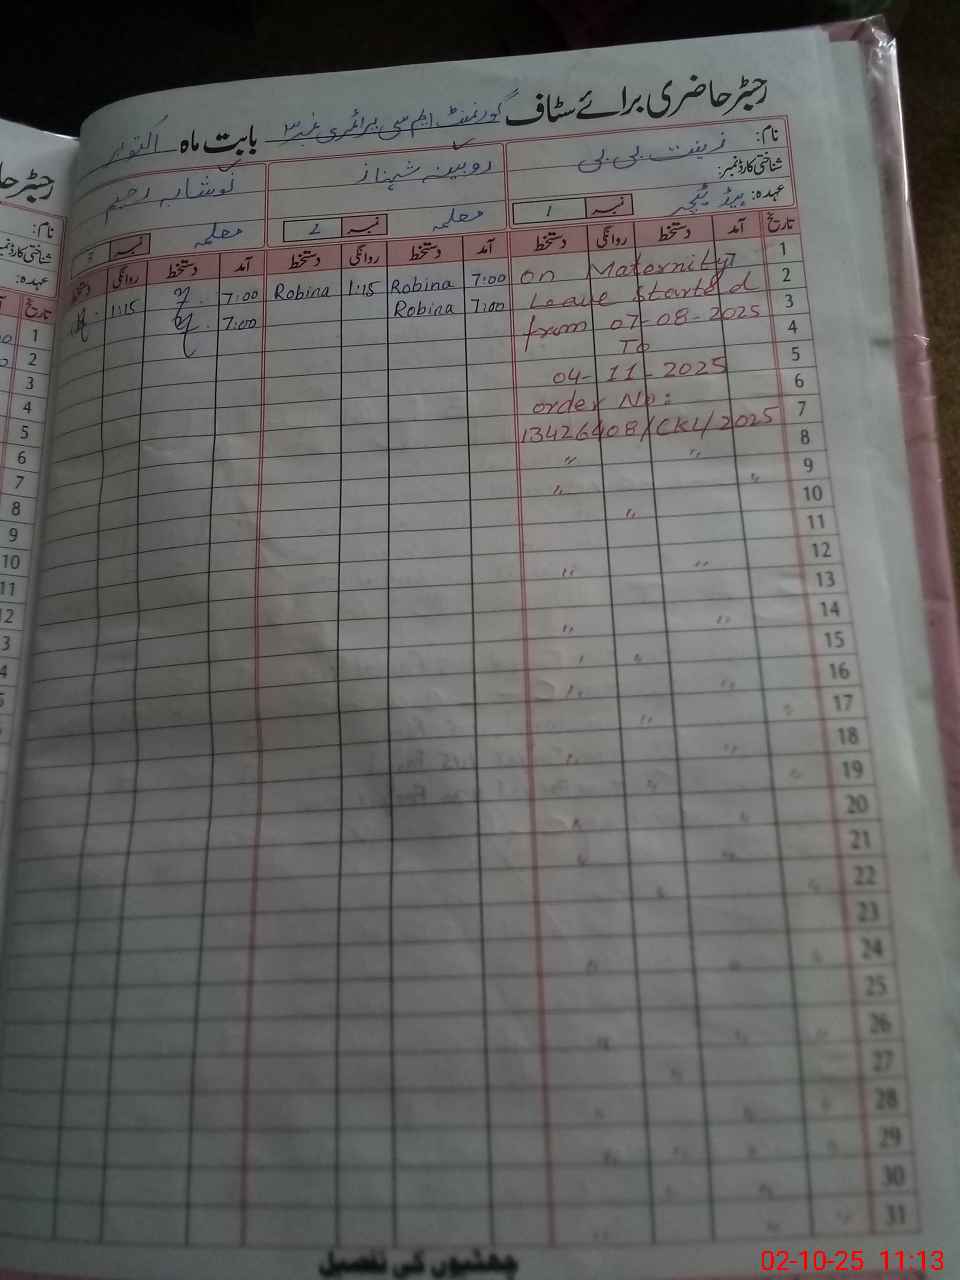 رجسٹر حاضری برائے سٹاف گورنمنٹ ایم سی پرائمری نمبر ۳ بابت ماہ اکتوبر
نام: زینت بی بی
شناختی کارڈ نمبر:
عہدہ: ہیڈ ٹیچر نمبر 1
روبینہ شہناز
معلمہ نمبر 2
نوشابہ رحیم
معلمہ نمبر 3
تاریخ آمد دستخط روانگی دستخط آمد دستخط روانگی دستخط آمد دستخط روانگی دستخط
1 on Maternity 7:00 Robina 1:15 Robina 7:00 1:15
2 Leave Started 7:00 Robina 7:00
3 from 07-08-2025
4 To
5 04-11-2025
6 order No:
7 13426408/CKL/2025
8 " "
9 " "
10 "
11
12 " "
13
14 " "
15 " "
16 " "
17 " "
18 " "
19 " "
20 " "
21 " "
22 " "
23
24 " " "
25
26 " " "
27 "
28 " " "
29 " " " "
30 " "
31 " " "
چھٹیوں کی تفصیل
رجسٹر حا
نام:
شناختی کارڈ نمبر
عہدہ:
تاریخ
1
2
3
4
5
6
7
8
9
10
11
12
02-10-25 11:13